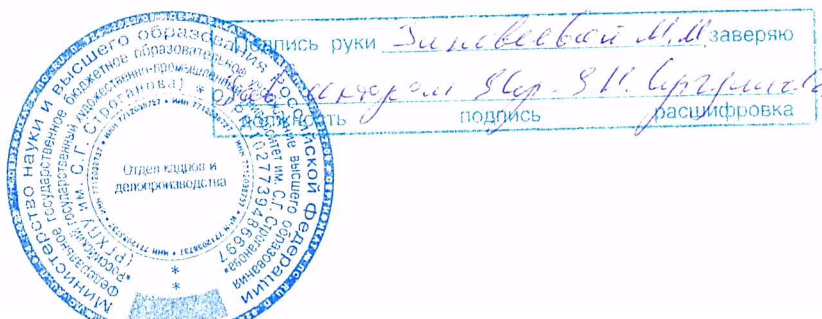 Подпись руки Зиновеевой М.М. заверяю
должность подпись расшифровка
Министерство науки и высшего образования Российской Федерации
Федеральное государственное бюджетное образовательное учреждение высшего образования
"Российский государственный художественно-промышленный университет им. С.Г. Строганова"
(РГХПУ им. С.Г. Строганова) * ОГРН 1027739486697
* ИНН 7712038737 * ИНН 7712038737 * ИНН 7712038737
Отдел кадров и
делопроизводства